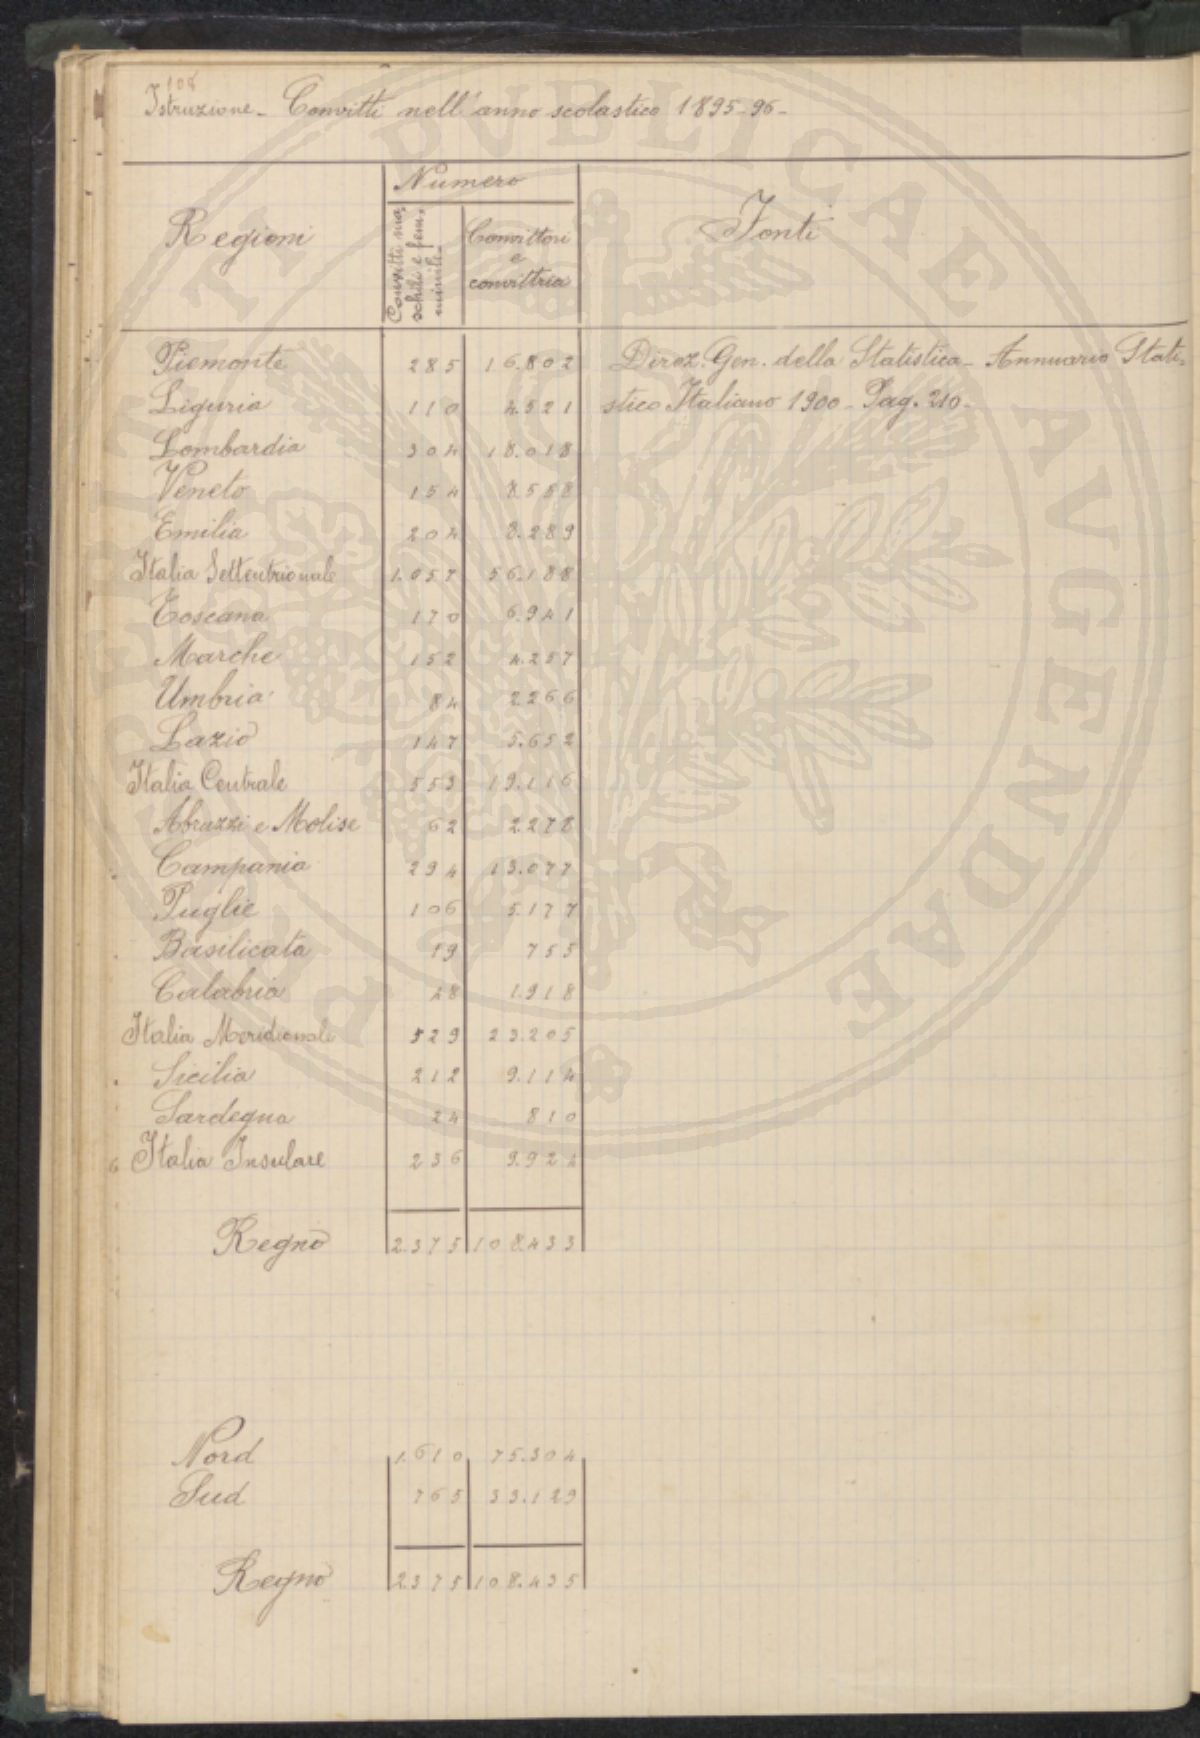 108
Istruzione - Convitti nell'anno scolastico 1895-96 -
Regioni
Numero
Convitti ma-
schili e fem-
minili -
Convittori
e
convittrici
Fonti
Piemonte 285 16.802 Direz. Gen. della Statistica - Annuario Stati-
Liguria 110 4.521 stico Italiano 1900 - Pag. 210 -
Lombardia 304 18.018
Veneto 154 8.558
Emilia 204 8.289
Italia Settentrionale 1.057 56.188
Toscana 170 6.941
Marche 152 4.257
Umbria 84 2.266
Lazio 147 5.652
Italia Centrale 553 19.116
Abruzzi e Molise 62 2.278
Campania 294 13.077
Puglie 106 5.177
Basilicata 19 755
Calabria 48 1.918
Italia Meridionale 529 23.205
Sicilia 212 9.114
Sardegna 24 810
Italia Insulare 236 9.924
Regno 2.375 108.433
Nord 1.610 75.304
Sud 765 33.129
Regno 2.375 108.433
PUBLICAE AVGENDAE